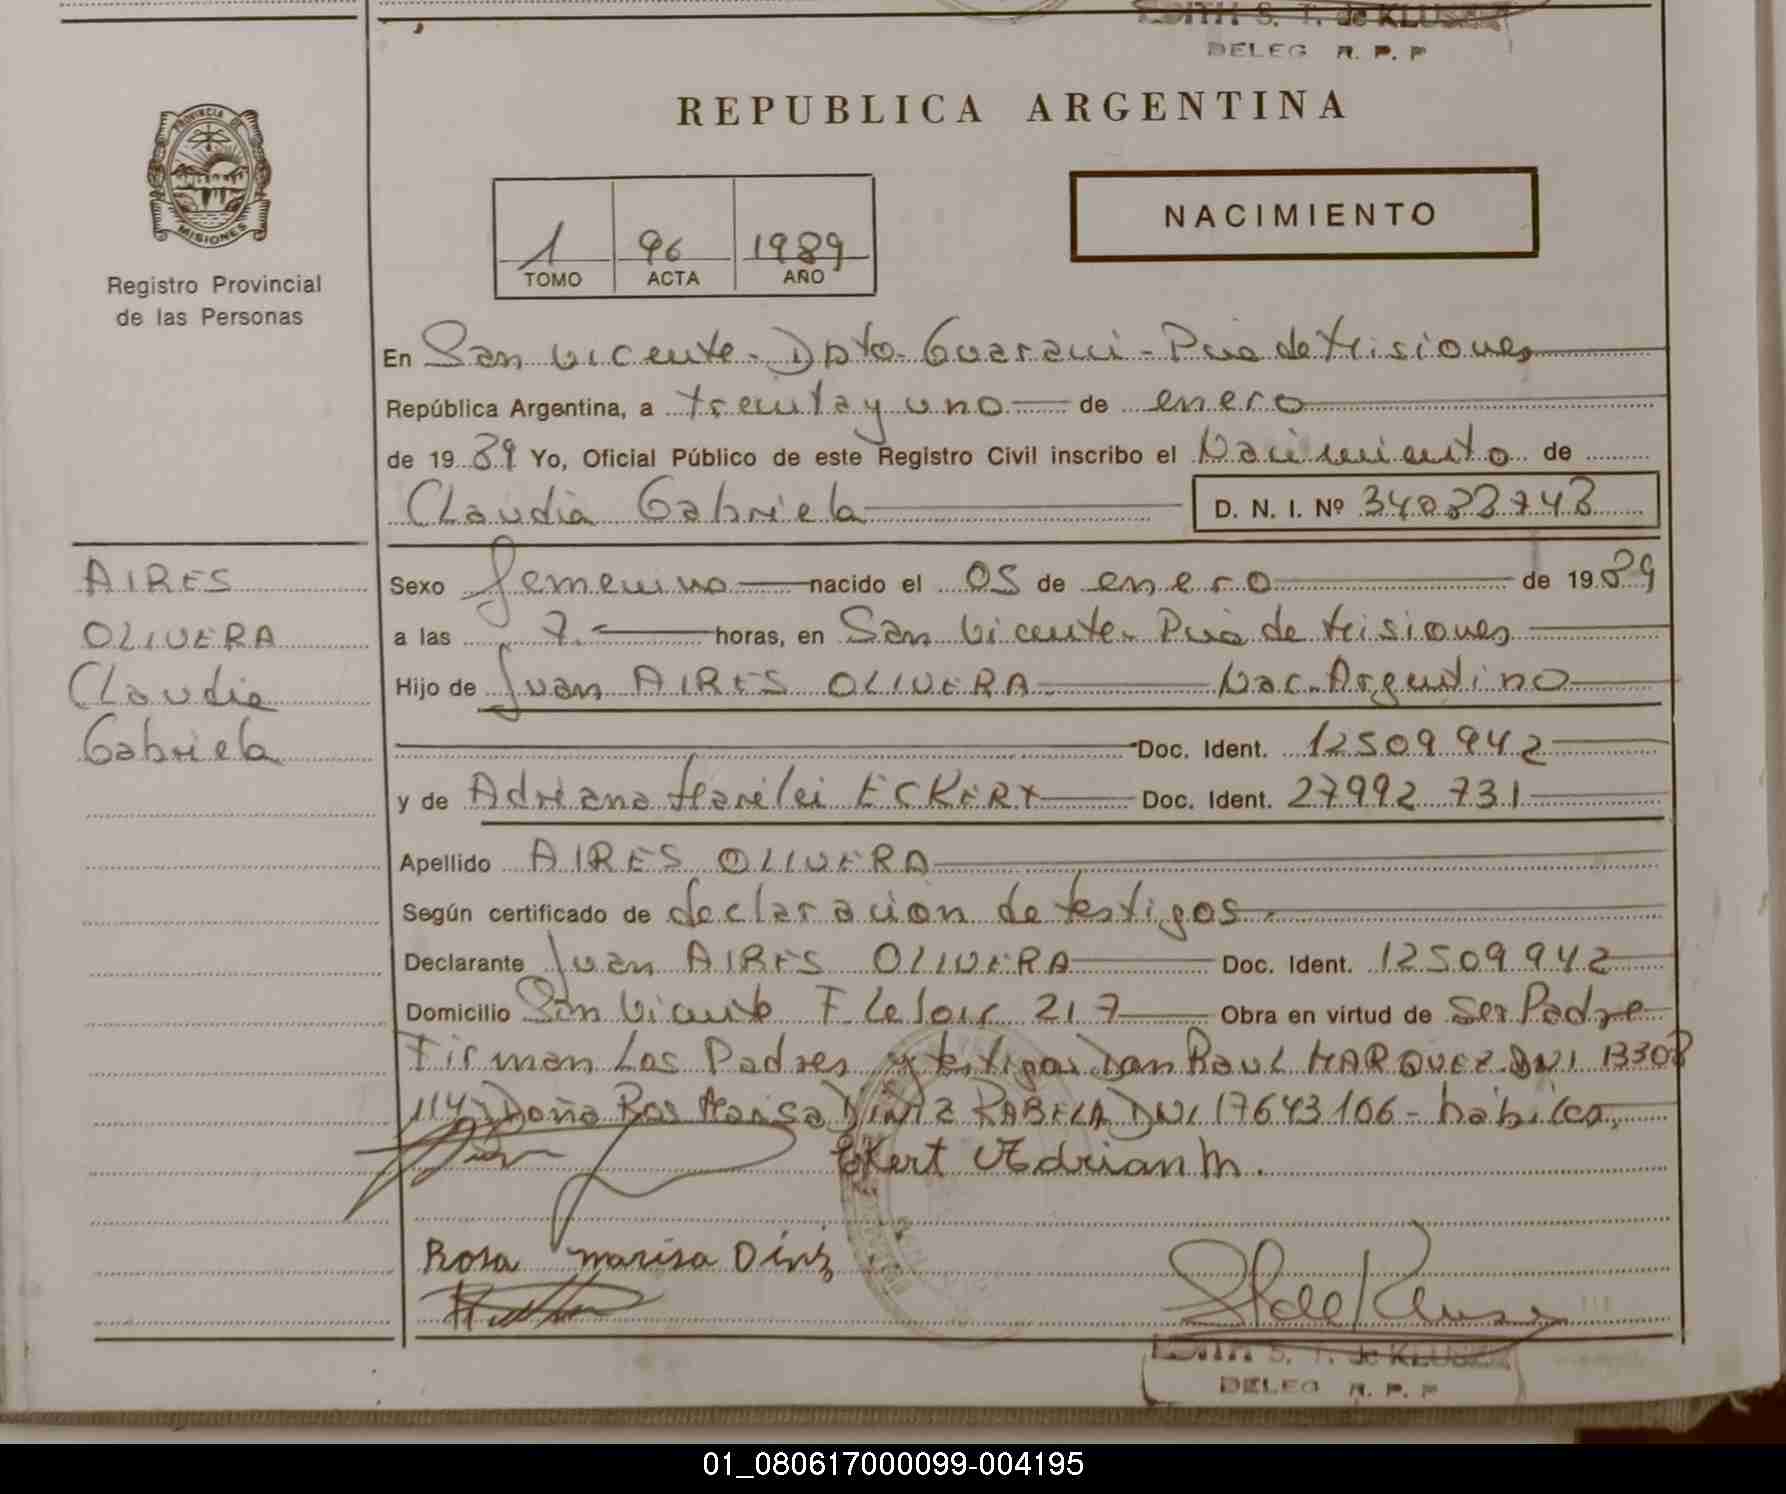 EDITH S. T. de KLUSKA
DELEG R. P. P
REPUBLICA ARGENTINA
PROVINCIA DE
MISIONES
Registro Provincial
de las Personas
1 96 1989
TOMO ACTA AÑO
NACIMIENTO
En San Vicente - Dpto - Guarani - Pcia de Misiones
República Argentina, a treinta y uno de enero
de 19 89 Yo, Oficial Público de este Registro Civil inscribo el Nacimiento de
Claudia Gabriela D. N. I. Nº
AIRES
OLIVERA
Claudia
Gabriela
Sexo femenino nacido el 05 de enero de 19 89
a las 7.- horas, en San Vicente - Pcia de Misiones
Hijo de Juan AIRES OLIVERA Nac. Argentino
Doc. Ident. 12509942
y de Adriana Marilei ECKERT Doc. Ident. 27992731
Apellido AIRES OLIVERA
Según certificado de declaracion de testigos.
Declarante Juan AIRES OLIVERA Doc. Ident. 12509942
Domicilio San Vicente F Leloir 217 Obra en virtud de Ser Padre
Firman Los Padres y testigos Don Raul MARQUEZ DNI 13308
114 y Doña Rosa Marisa DINIZ RABELA DNI 17643106 - habiles,
Ekert Adrian M.
Rosa marisa Diniz
EDITH S. T. de KLUSKA
DELEG R. P. P
01_080617000099-004195